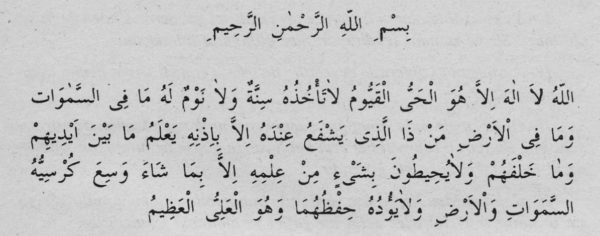 بِسْمِ اللّٰهِ الرَّحْمٰنِ الرَّحِيمِ
اَللّٰهُ لاَ اِلٰهَ اِلاَّ هُوَ الْحَىُّ الْقَيُّومُ لاٰتَأْخُذُهُ سِنَةٌ وَلاٰ نَوْمٌ لَهُ مَا فِى السَّمٰوَات
وَمَا فِى اْلاَرْضِ مَنْ ذَا الَّذِى يَشْفَعُ عِنْدَهُ اِلاَّ بِاِذْنِهِ يَعْلَمُ مَا بَيْنَ اَيْدِيهِمْ
وَمٰا خَلْفَهُمْ وَلاٰيُحِيطُونَ بِشَىْءٍ مِنْ عِلْمِهِ اِلاَّ بِمَا شَاءَ وَسِعَ كُرْسِيُّهُ
السَّمَوَاتِ وَاْلاَرْضِ وَلاٰيَؤُدُهُ حِفْظُهُمَا وَهُوَ الْعَلِىُّ الْعَظِيمُ